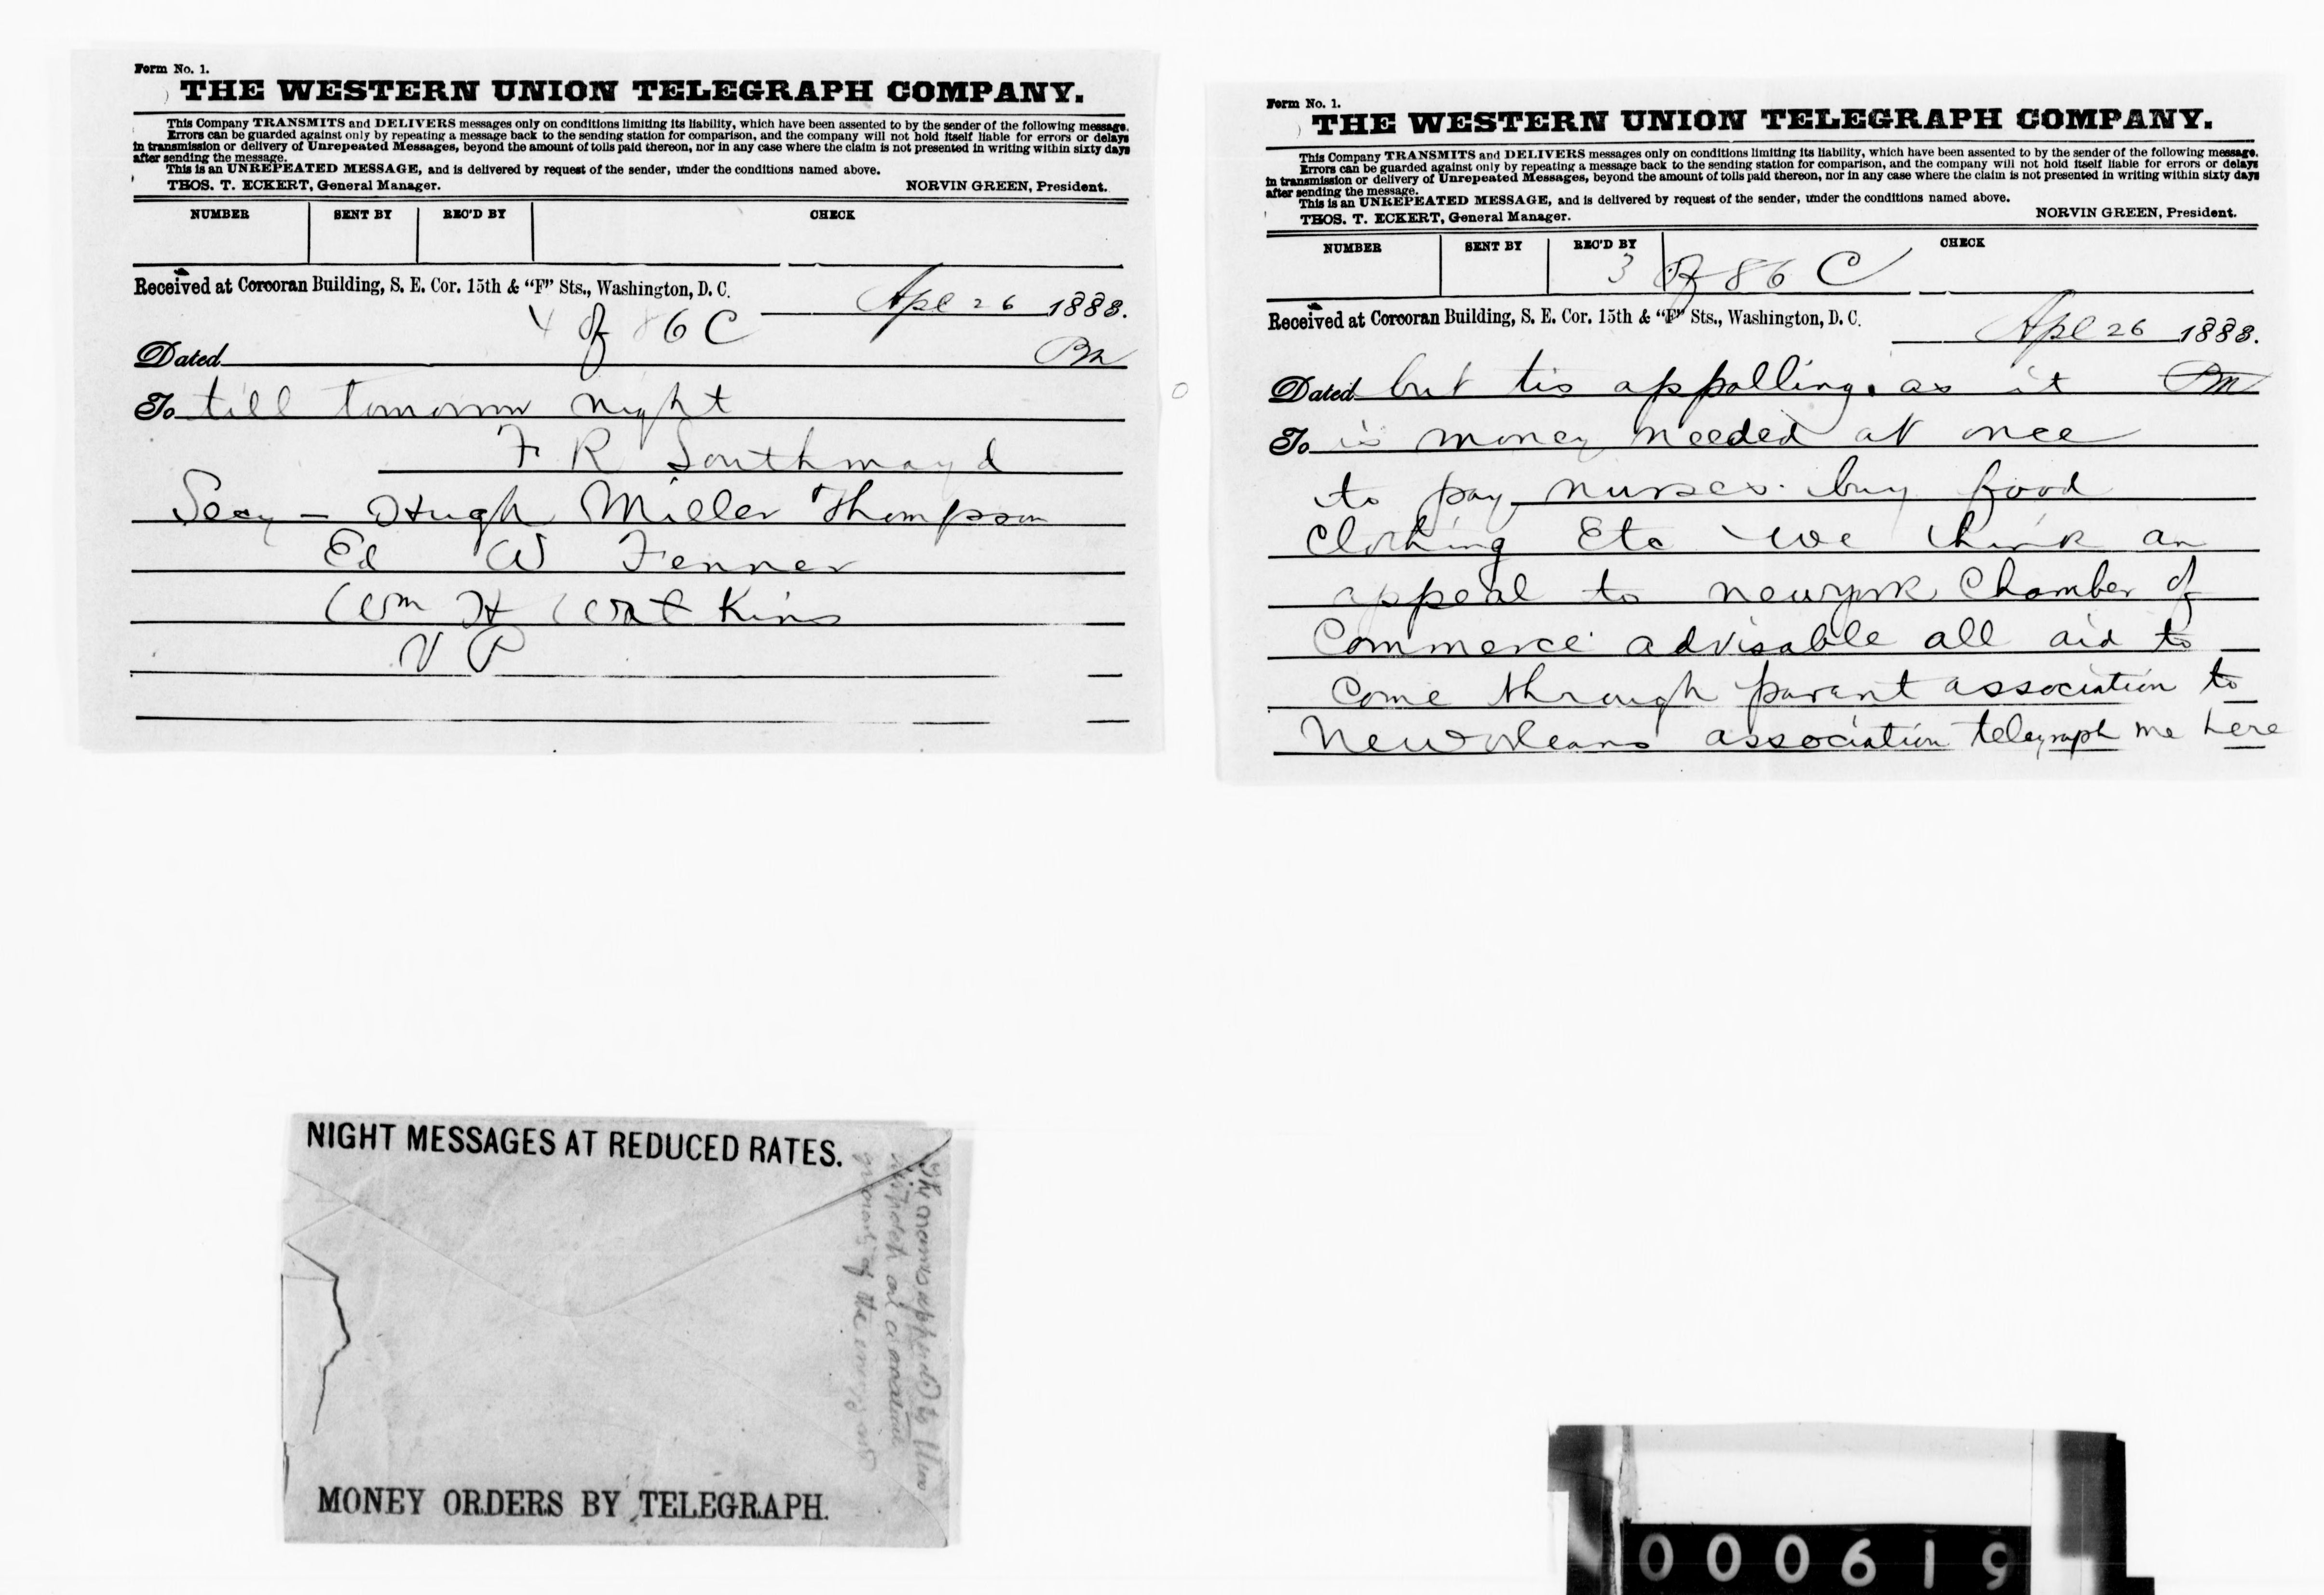 Form No. 1.
THE WESTERN UNION TELEGRAPH COMPANY.
This Company TRANSMITS and DELIVERS messages only on conditions limiting its liability, which have been assented to by the sender of the following message.
Errors can be guarded against only by repeating a message back to the sending station for comparison, and the company will not hold itself liable for errors or delays
in transmission or delivery of Unrepeated Messages, beyond the amount of tolls paid thereon, nor in any case where the claim is not presented in writing within sixty days
after sending the message.
This is an UNREPEATED MESSAGE, and is delivered by request of the sender, under the conditions named above.
THOS. T. ECKERT, General Manager. NORVIN GREEN, President.
NUMBER SENT BY REC'D BY CHECK
Received at Corcoran Building, S. E. Cor. 15th & "F" Sts., Washington, D. C.
Apl 26 1883.
4 of 86 C
Dated
To till tomorrow night
F R Southmayd
Secy - Hugh Miller Thompson
Ed W Fenner
Wm H Watkins
V P
Form No. 1.
THE WESTERN UNION TELEGRAPH COMPANY.
This Company TRANSMITS and DELIVERS messages only on conditions limiting its liability, which have been assented to by the sender of the following message.
Errors can be guarded against only by repeating a message back to the sending station for comparison, and the company will not hold itself liable for errors or delays
in transmission or delivery of Unrepeated Messages, beyond the amount of tolls paid thereon, nor in any case where the claim is not presented in writing within sixty days
after sending the message.
This is an UNREPEATED MESSAGE, and is delivered by request of the sender, under the conditions named above.
THOS. T. ECKERT, General Manager. NORVIN GREEN, President.
NUMBER SENT BY REC'D BY CHECK
3 of 86 C
Received at Corcoran Building, S. E. Cor. 15th & "F" Sts., Washington, D. C.
Apl 26 1883.
Dated but tis appalling. as it
To is money needed at once
to pay nurses. buy food
Clothing Etc we think an
appeal to newyork Chamber of
Commerce advisable all aid to
Come through parent association to
New orleans association telegraph me here
NIGHT MESSAGES AT REDUCED RATES.
of the
MONEY ORDERS BY TELEGRAPH.
000619